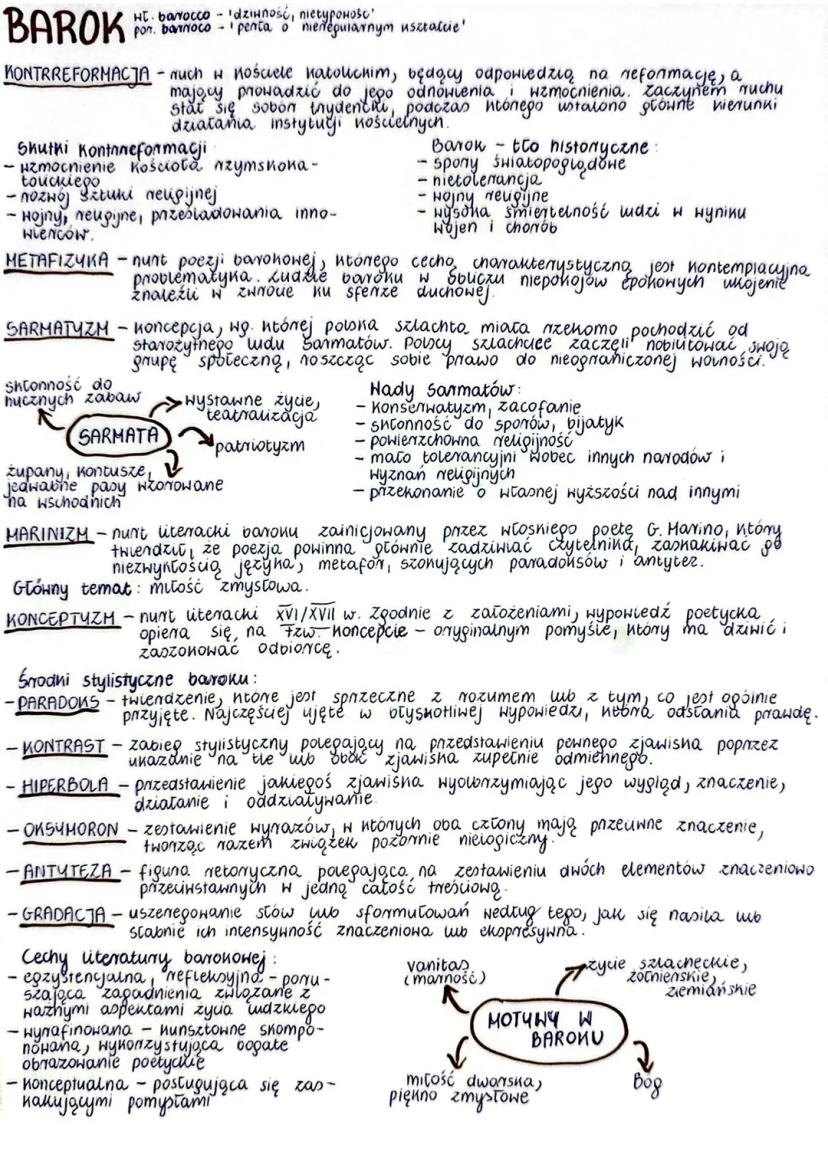 BAROK wł. barocco - 'dziwność, nietypowość'
por. barroco - 'perła o nieregularnym kształcie'
KONTRREFORMACJA - ruch w Kościele Katolickim, będący odpowiedzią na reformację, a
mający prowadzić do jego odnowienia i wzmocnienia. Zaczynem ruchu
stał się sobór trydencki, podczas którego ustalono główne kierunki
działania instytucji kościelnych.
Skutki kontrreformacji
- wzmocnienie kościoła rzymskoka-
tolickiego
- rozwój sztuki religijnej
- wojny, religijne, prześladowania inno-
wierców.
Barok - tło historyczne:
- spory światopoglądowe
- nietolerancja
- wojny religijne
- wysoka śmiertelność ludzi w wyniku
wojen i chorób
METAFIZYKA - nurt poezji barokowej, którego cechą charakterystyczną jest kontemplacyjna
problematyka. Ludzie baroku w obliczu niepokojów epokowych ukojenie
znaleźli w zwrocie ku sferze duchowej.
SARMATYZM - koncepcja, wg. której polska szlachta miała rzekomo pochodzić od
starożytnego ludu Sarmatów. Polscy szlachcice zaczęli nobilitować swoją
grupę społeczną, roszcząc sobie prawo do nieograniczonej wolności.
skłonność do
hucznych zabaw
wystawne życie,
teatralizacja
SARMATA
patriotyzm
żupany, kontusze,
jedwabne pasy wzorowane
na wschodnich
Wady Sarmatów:
- konserwatyzm, zacofanie
- skłonność do sporów, bijatyk
- powierzchowna religijność
- mało tolerancyjni wobec innych narodów i
wyznań religijnych
- przekonanie o własnej wyższości nad innymi
MARINIZM - nurt literacki baroku zainicjowany przez włoskiego poetę G. Marino, który
twierdził, że poezja powinna głównie zadziwiać czytelnika, zaskakiwać go
niezwykłością języka, metafor, szokujących paradoksów i antytez.
Główny temat: miłość zmysłowa.
KONCEPTYZM - nurt literacki XVI/XVII w. Zgodnie z założeniami, wypowiedź poetycka
opiera się na tzw. koncepcie - oryginalnym pomyśle, który ma dziwić i
zaszokować odbiorcę.
Środki stylistyczne baroku:
- PARADOKS - twierdzenie, które jest sprzeczne z rozumem lub z tym, co jest ogólnie
przyjęte. Najczęściej ujęte w błyskotliwej wypowiedzi, która odsłania prawdę.
- KONTRAST - zabieg stylistyczny polegający na przedstawieniu pewnego zjawiska poprzez
ukazanie na tle lub obok zjawiska zupełnie odmiennego.
- HIPERBOLA - przedstawienie jakiegoś zjawiska wyolbrzymiając jego wygląd, znaczenie,
działanie i oddziaływanie.
- OKSYMORON - zestawienie wyrazów, w których oba człony mają przeciwne znaczenie,
tworząc razem związek pozornie nielogiczny.
- ANTYTEZA - figura retoryczna polegająca na zestawieniu dwóch elementów znaczeniowo
przeciwstawnych w jedną całość treściową.
- GRADACJA - uszeregowanie słów lub sformułowań według tego, jak się nasila lub
słabnie ich intensywność znaczeniowa lub ekspresywna.
Cechy literatury barokowej:
- egzystencjalna, refleksyjna - poru-
szająca zagadnienia związane z
ważnymi aspektami życia ludzkiego
- wyrafinowana - kunsztowne skompo-
nowana, wykorzystująca bogate
obrazowanie poetyckie
- konceptualna - posługująca się zas-
kakującymi pomysłami
vanitas
(marność)
życie szlacheckie,
żołnierskie,
ziemiańskie
MOTYWY W
BAROKU
miłość dworska,
piękno zmysłowe
Bóg